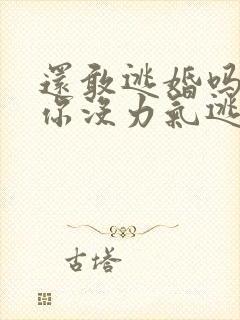 還敢逃婚吗
你没力氣逃
古塔